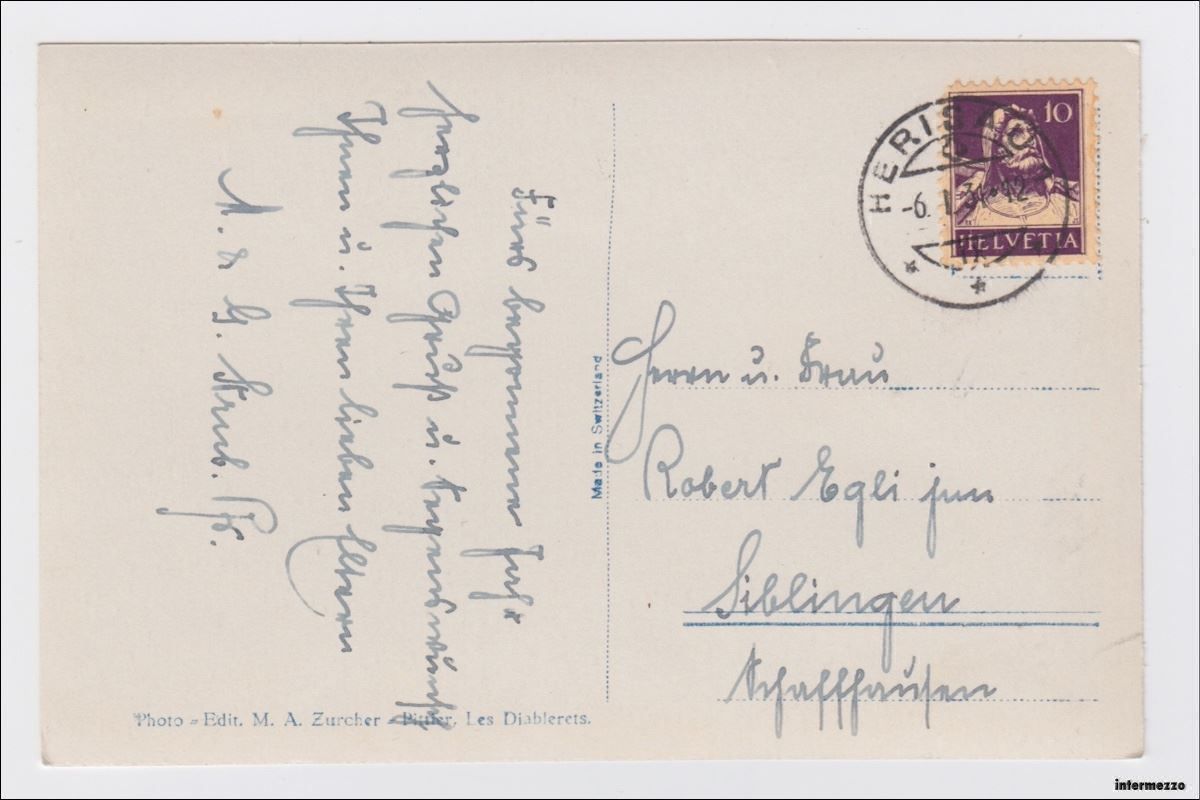 Fürs begonnene Jahr
herzlichen Gruß u. Segenswünsche
Ihnen u. Ihren lieben Eltern
A. &
HERISAU 1
-6. I. 31-12
10
HELVETIA
Made in Switzerland
Herrn u. Frau
Robert Egli jun
Siblingen
Schaffhausen
Photo - Edit. M. A. Zurcher - Pittier, Les Diablerets.
intermezzo